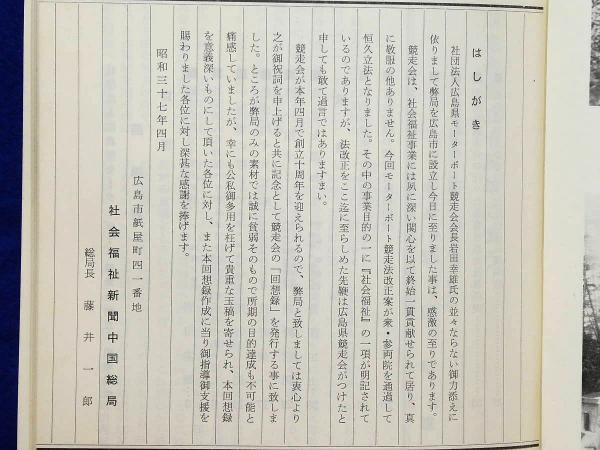 はしがき
社団法人広島県モーターボート競走会会長岩田幸雄氏の並々ならない御力添えに
依りまして弊局を広島市に設立し今日に至りました事は、感激の至りであります。
競走会は、社会福祉事業には夙に深い関心を以て終始一貫貢献せられて居り、真
に敬服の他ありません。今回モーターボート競走法改正案が衆・参両院を通過して
恒久立法となりました。その中の事業目的の一に『社会福祉』の一項が明記されて
いるのでありますが、法改正をここ迄に至らしめた先鞭は広島県競走会がつけたと
申しても敢て過言ではありますまい。
競走会が本年四月で創立十周年を迎えられるので、弊局と致しましては衷心より
之が御祝詞を申上げると共に記念として競走会の「回想録」を発行する事に致しま
した。ところが弊局のみの素材では誠に貧弱そのもので所期の目的達成も不可能と
痛感していましたが、幸にも公私御多用を枉げて貴重な玉稿を寄せられ、本回想録
を意義深いものにして頂いた各位に対し、また本回想録作成に当り御指導御支援を
賜わりました各位に対し深甚な感謝を捧げます。
昭和三十七年四月
広島市紙屋町四一番地
社会福祉新聞中国総局
総局長 藤井一郎